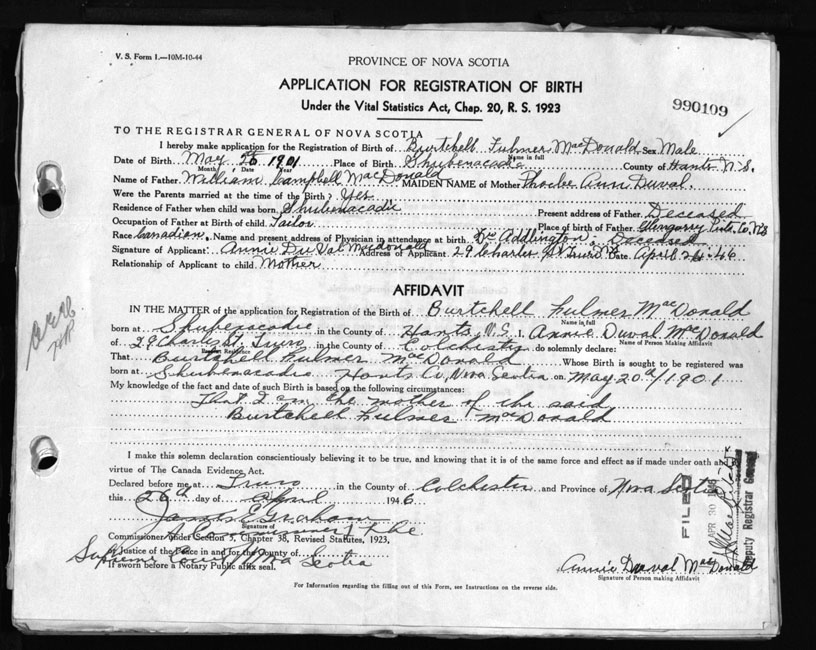 V. S. Form 1.—10M-10-44
PROVINCE OF NOVA SCOTIA
APPLICATION FOR REGISTRATION OF BIRTH
Under the Vital Statistics Act, Chap. 20, R. S. 1923
990109
TO THE REGISTRAR GENERAL OF NOVA SCOTIA
I hereby make application for the Registration of Birth of Burtchell Fulmer MacDonald Sex Male
Name in full
Date of Birth May 20 1901 Place of Birth Shubenacadie County of Hants N.S.
Month Date Year
Name of Father William Campbell MacDonald MAIDEN NAME of Mother Phoebe Ann Duval.
Were the Parents married at the time of the Birth? Yes
Residence of Father when child was born Shubenacadie Present address of Father Deceased
Occupation of Father at Birth of child Tailor Place of birth of Father Glengarry Pict. Co. N.S
Race Canadian. Name and present address of Physician in attendance at birth Dr Addlington: Deceased
Signature of Applicant: Annie DuVal Macdonald Address of Applicant 29 Charles St Truro N.S Date April 26-46
Relationship of Applicant to child Mother
AFFIDAVIT
IN THE MATTER of the application for Registration of the Birth of Burtchell Fulmer MacDonald
Name in full
born at Shubenacadie in the County of Hants N.S. I, Annie Duval MacDonald
Name of Person Making Affidavit
of 29 Charles St. Truro in the County of Colchester do solemnly declare:
Present Residence
That Burtchell Fulmer MacDonald Whose Birth is sought to be registered was
born at Shubenacadie Hants Co, Nova Scotia on May 20th/1901
My knowledge of the fact and date of such Birth is based on the following circumstances:
That I am the mother of the said
Burtchell Fulmer MacDonald
I make this solemn declaration conscientiously believing it to be true, and knowing that it is of the same force and effect as if made under oath and by
virtue of The Canada Evidence Act.
Declared before me at Truro in the County of Colchester and Province of Nova Scotia
this 26th day of April 1946
James E Graham
Signature of
A Commissioner of the
Commissioner under Section 5, Chapter 38, Revised Statutes, 1923,
Justice of the Peace in and for the County of
Supreme Court Nova Scotia
If sworn before a Notary Public affix seal.
FILED
APR 30 1946
Deputy Registrar General
Annie Duval MacDonald
Signature of Person making Affidavit
For Information regarding the filling out of this Form, see Instructions on the reverse side.